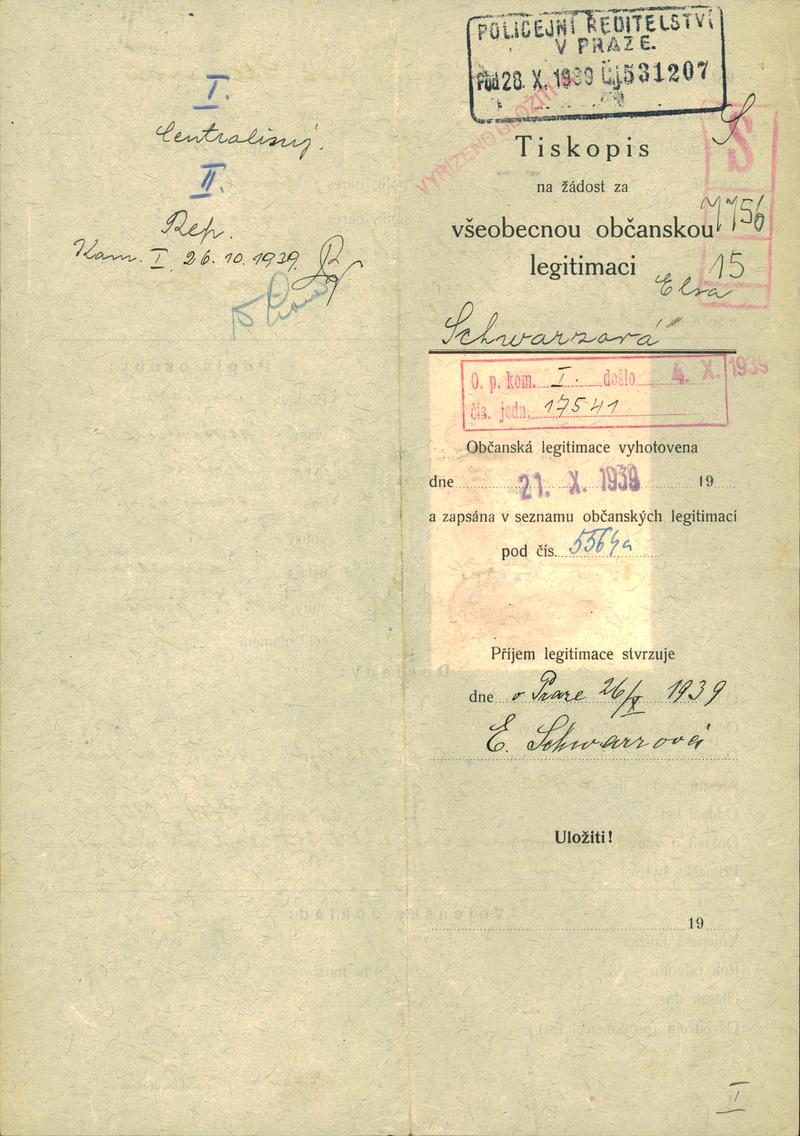 I.
II.
Rep.
Kom. I. 26. 10. 1939.
POLICEJNÍ ŘEDITELSTVÍ
V PRAZE.
28. X. 1939 Čj. 531207
VYŘÍZENO ULOŽITI
S
S
Tiskopis
na žádost za
všeobecnou občanskou
legitimaci
7756
15
Elsa
Schwarzová
O. p. kom. I. došlo 4. X. 1939
čís. jedn. 17541
Občanská legitimace vyhotovena
dne 21. X. 1939 19
a zapsána v seznamu občanských legitimací
pod čís. 5564a
Příjem legitimace stvrzuje
dne v Praze 26/X 1939
E. Schwarzová
Uložiti!
19
I